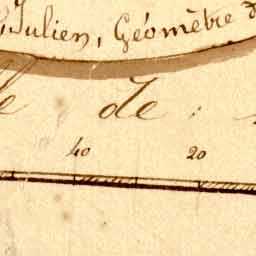 Julien, Géomètre
de
40 20